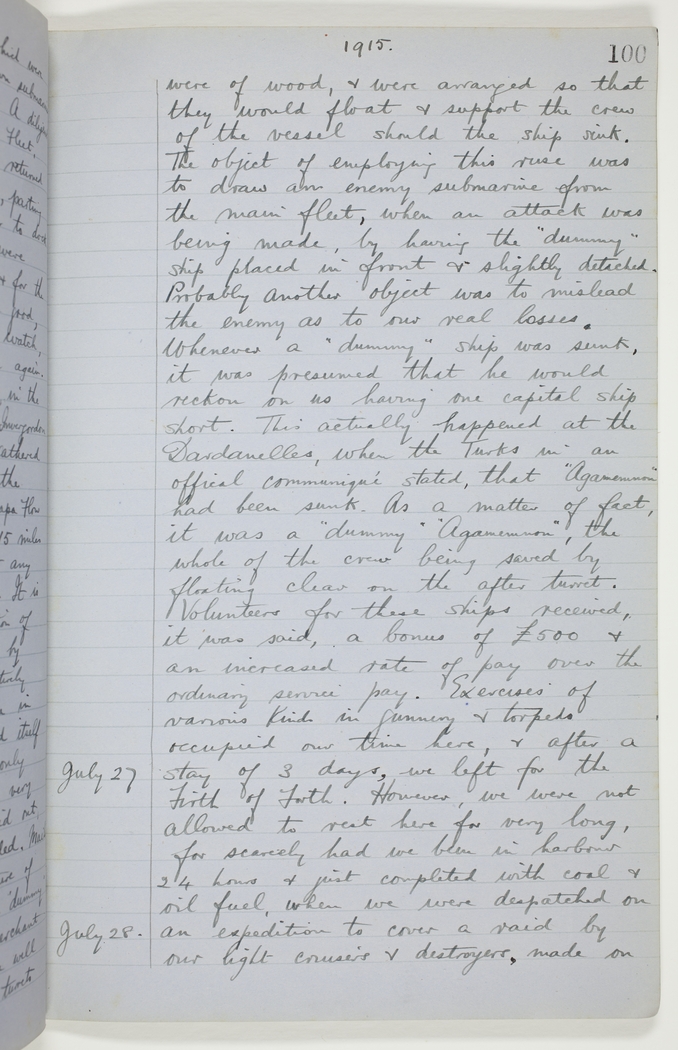 1915.
100
were of wood, & were arranged so that
they would float & support the crew
of the vessel should the ship sink.
The object of employing this ruse was
to draw an enemy submarine from
the main fleet, when an attack was
being made, by having the "dummy"
ship placed in front & slightly detached.
Probably another object was to mislead
the enemy as to our real losses.
Whenever a "dummy" ship was sunk,
it was presumed that he would
reckon on us having one capital ship
short. This actually happened at the
Dardanelles, when the Turks in an
offical communiqué stated, that "Agamemnon"
had been sunk. As a matter of fact,
it was a "dummy" "Agamemnon", the
whole of the crew being saved by
floating clear on the after turret.
Volunteers for these ships received,
it was said, a bonus of £500 &
an increased rate of pay over the
ordinary service pay. Exercises of
various kinds in gunnery & torpedo
occupied our time here, & after a
July 27 stay of 3 days, we left for the
Firth of Forth. However, we were not
allowed to rest here for very long,
for scarcely had we been in harbour
24 hours & just completed with coal &
oil fuel, when we were despatched on
July 28. an expedition to cover a raid by
our light cruisers & destroyers, made on
hich were
submarine
A
Fleet,
returned
parting
to
were
& for the
good,
watch,
again.
in the
Invergordon
gathered
the
Scapa Flow
15 miles
any
It is
of
by
in
itself
only
very
out,
of
"dummy
merchant
will
turrets